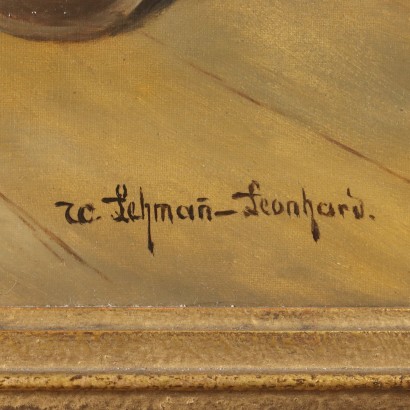 W. Lehman̄-Leonhard.